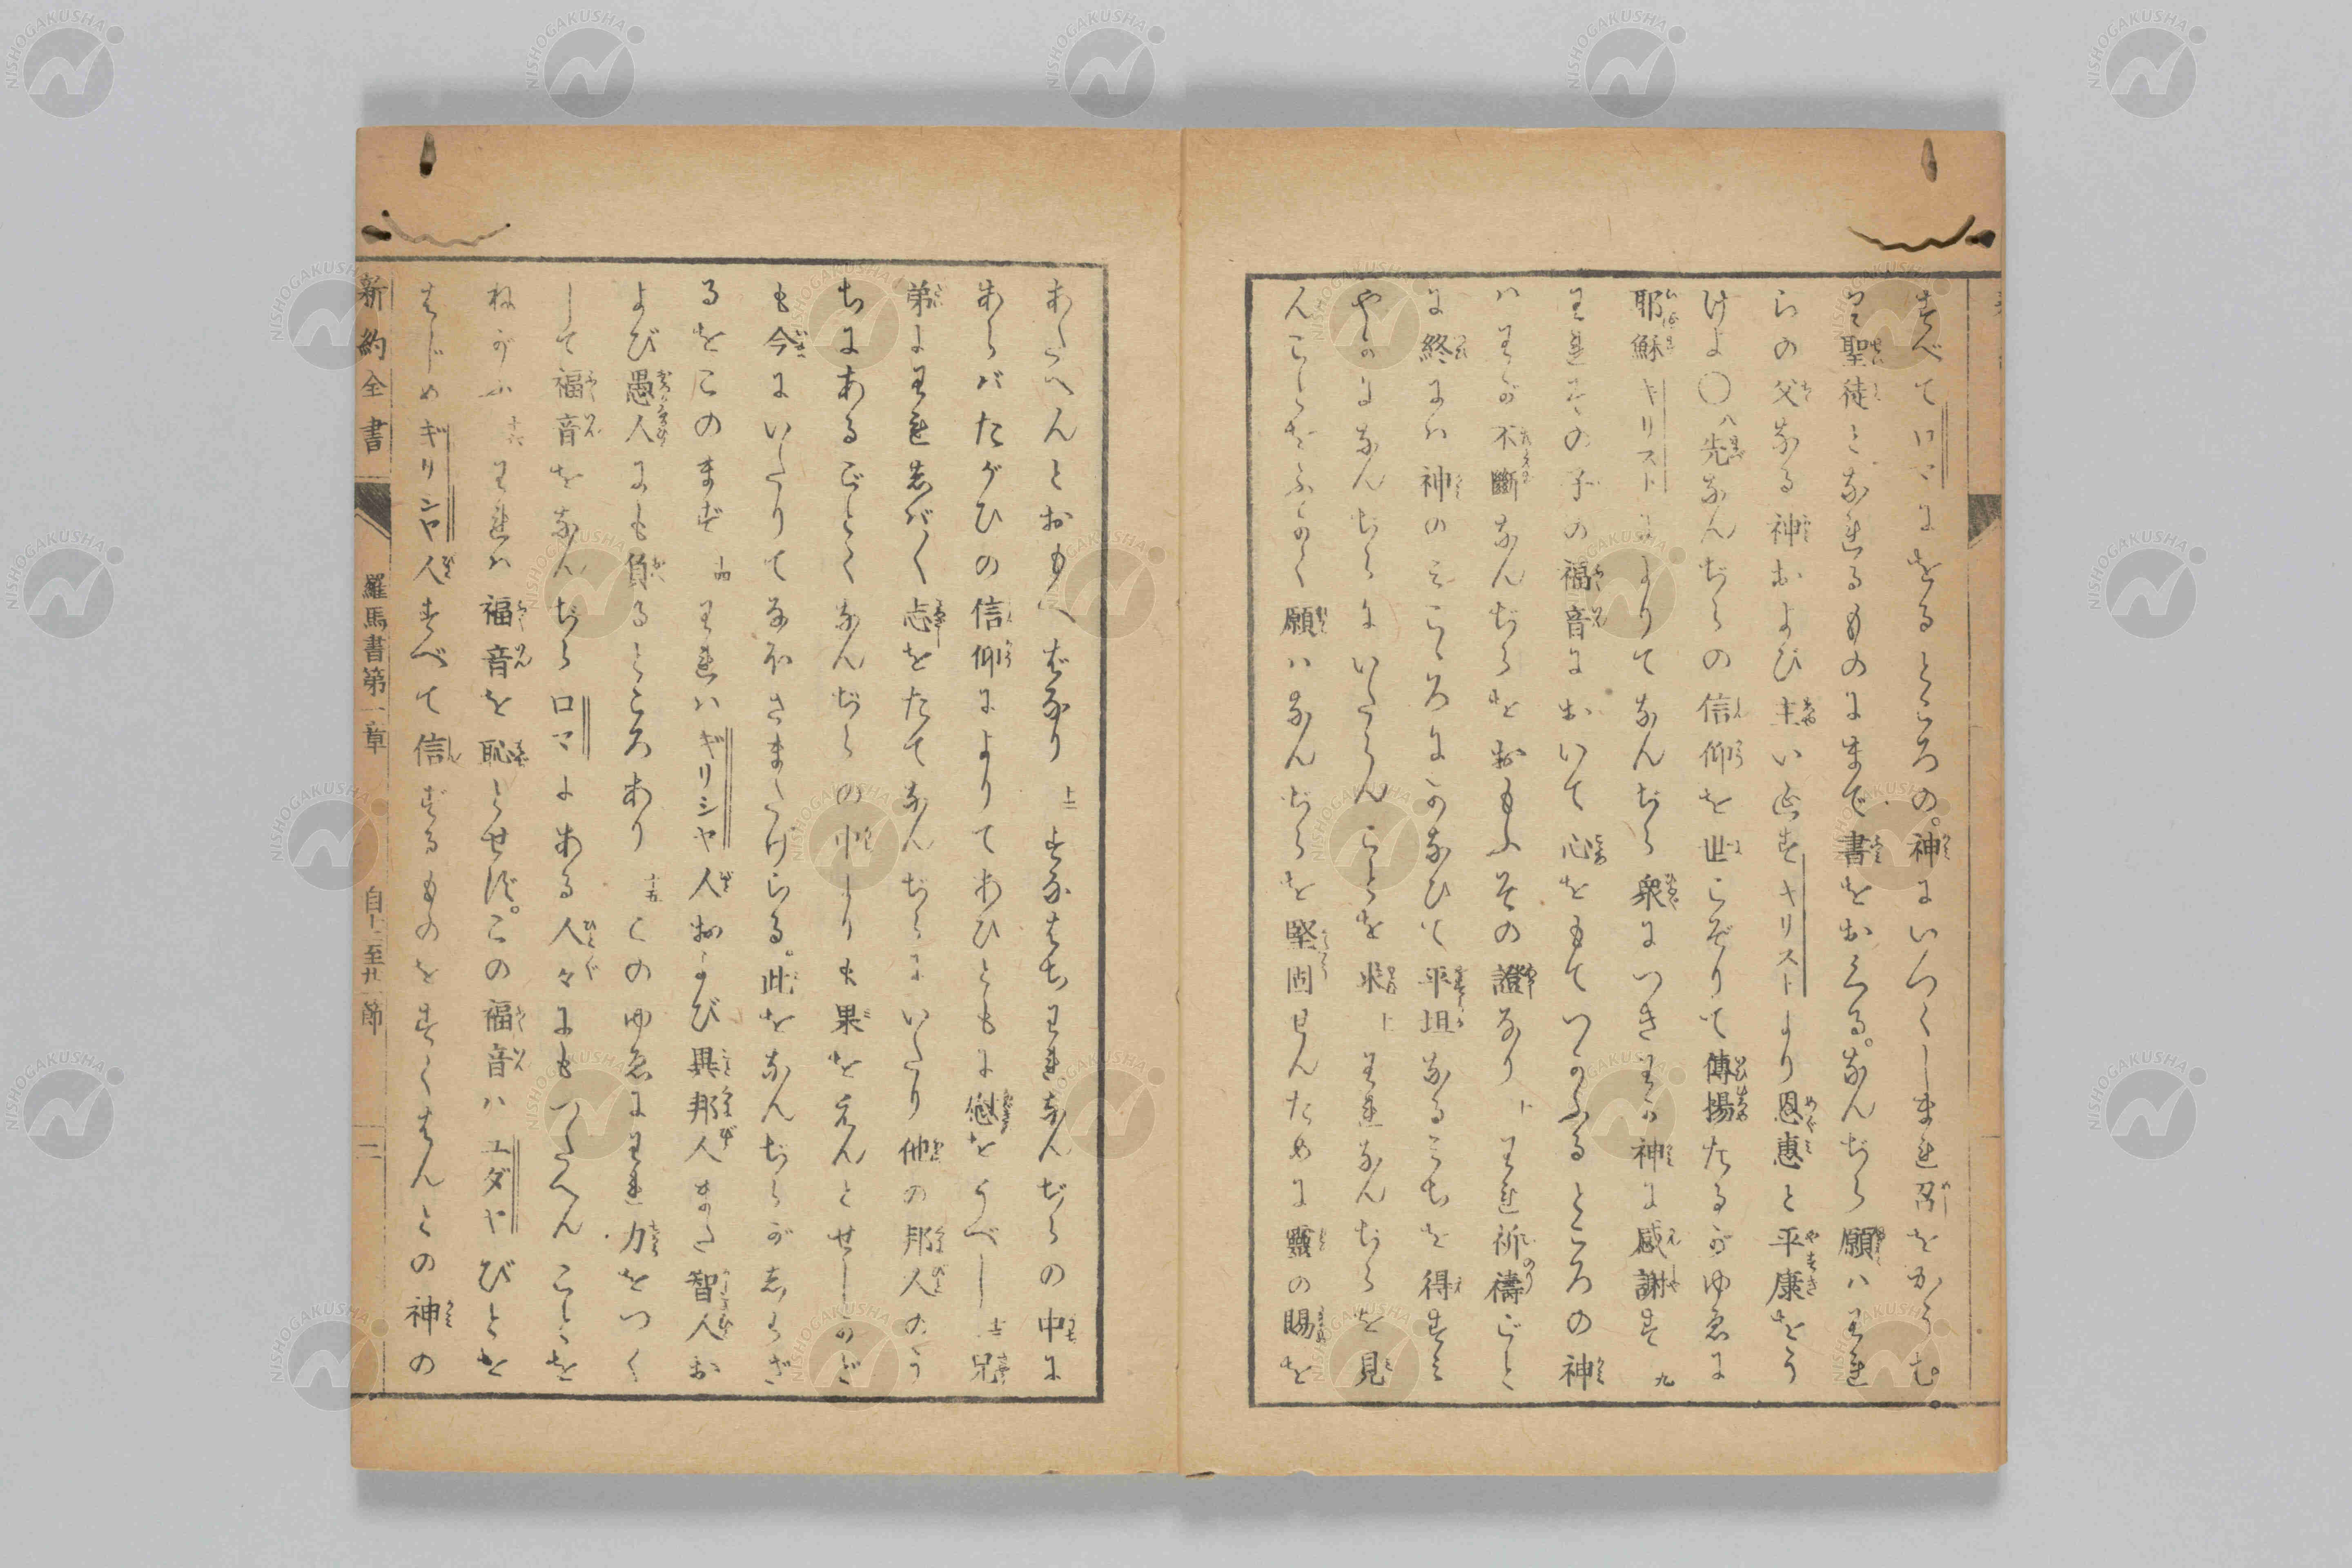 すべてロマにをるところの。神にいつくしまれ召をかうむ。
る聖徒となれるものにまで書をおくる。なんぢら願ハわれ
らの父なる神および主いゑすキリストより恩惠と平康をう
けよ〇八先なんぢらの信仰を世こぞりて傳揚たるがゆゑに
耶穌キリストによりてなんぢら衆につきわが神に感謝す 九
われその子の福音において心をもてつかふるところの神
ハわが不斷なんぢらをおもふその證なり 十 われ祈禱ごと
に終にハ神のみこゝろにかなひて平坦なるみちを得すみ
やかになんぢらにいたらんことを求 十一 われなんぢらを見
んことをふかく願ハなんぢらを堅固せんために靈の賜を
あたへんとおもへばなり 十二 すなはちわれなんぢらの中に
ありバたがひの信仰によりてあひともに慰をうべし 十三 兄
弟よわれしバ〳〵志をたてなんぢらにいたり他の邦人のう
ちにあるごとくなんぢらの中よりも果をえんとせしかど
も今にいたりてなほさまたげらる。此をなんぢらがしらざ
るをこのまず 十四 われハギリシヤ人および異邦人また智人お
よび愚人にも負るところあり 十五 このゆゑにわれ力をつく
して福音をなんぢらロマにある人々にもつたへんことを
ねがふ 十六 われハ福音を恥とせず。この福音ハユダヤびとを
はじめギリシヤ人すべて信ずるものをすくはんとの神の
新約全書 羅馬書第一章 自十二至廿一節 二